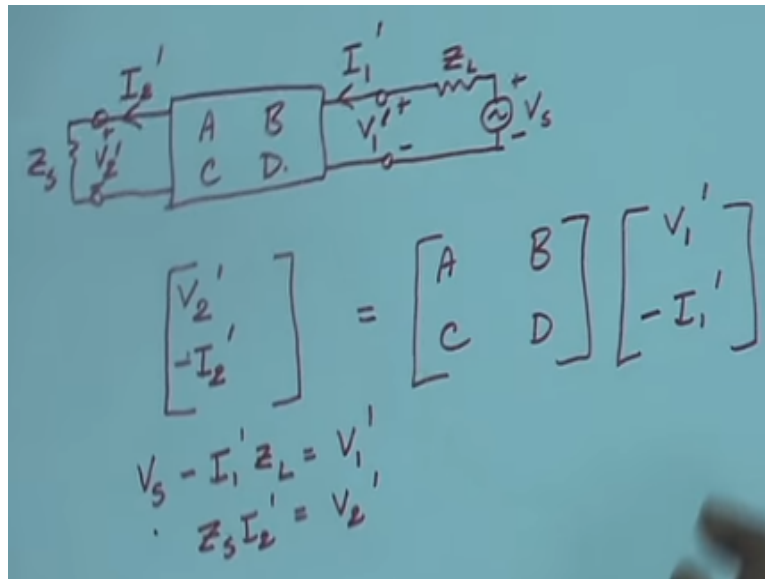 I₂' I₁' Z_L
Z_s + V₂' A B C D. V₁' + - + - V_s
[V₂' -I₂'] = [A B C D] [V₁' -I₁']
V_s - I₁' Z_L = V₁'
Z_s I₂' = V₂'